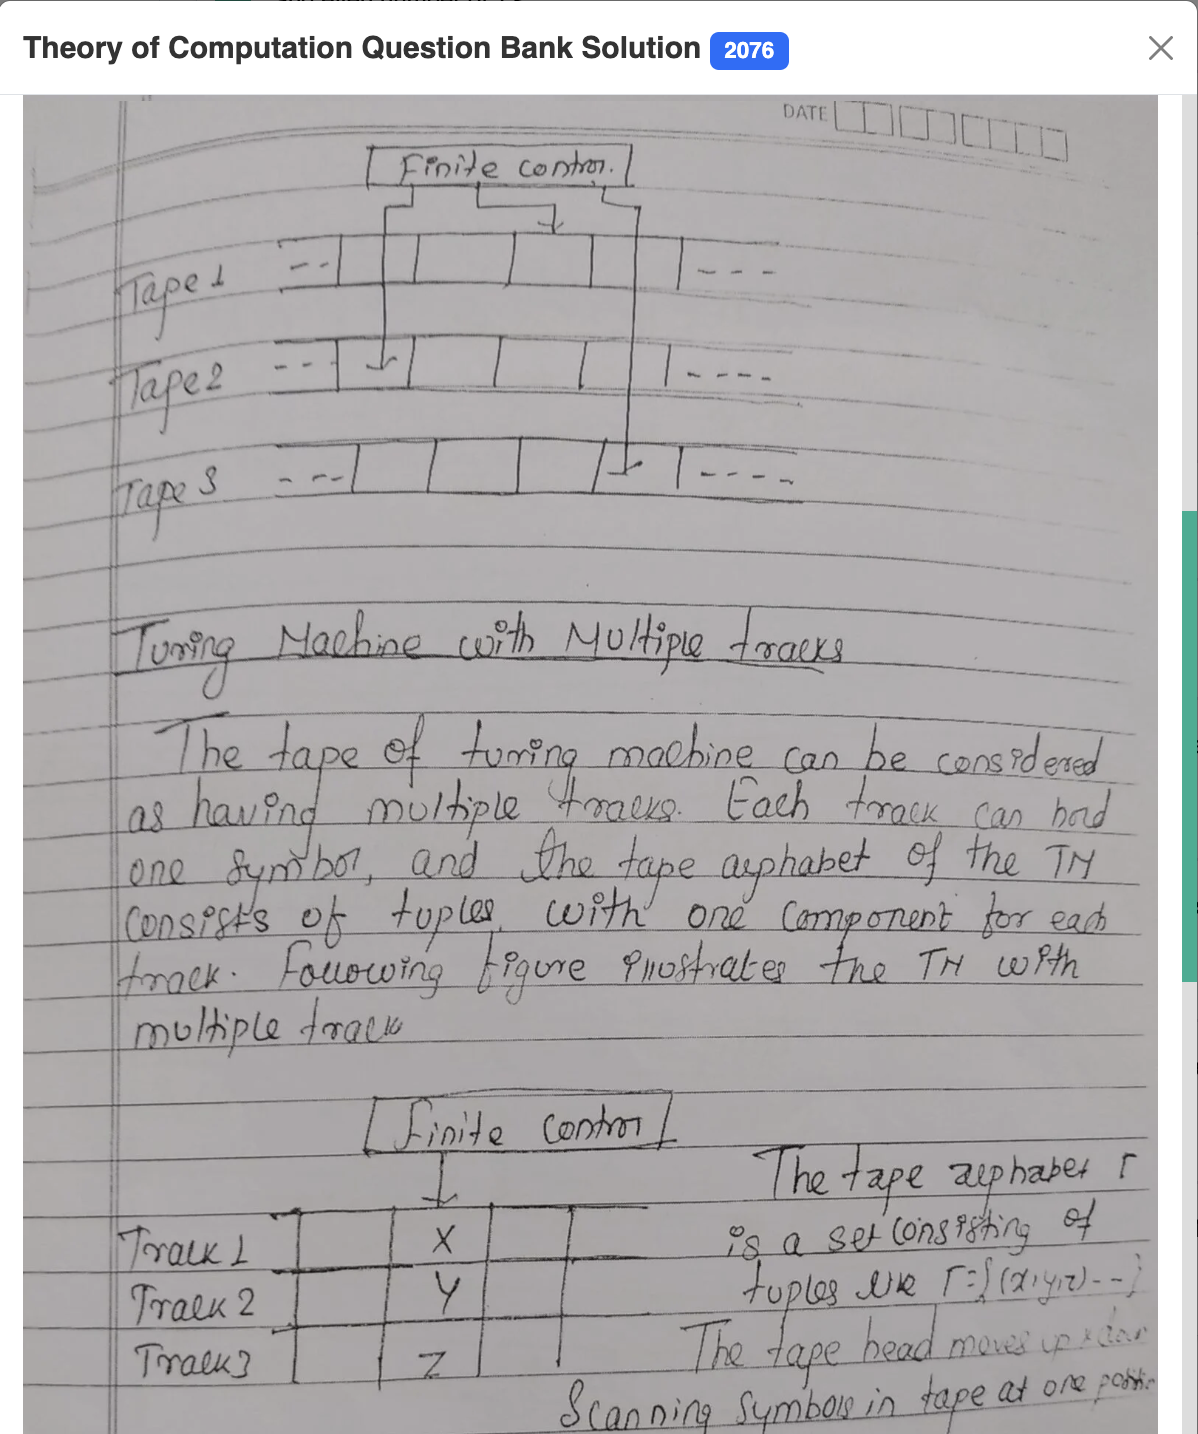 Theory of Computation Question Bank Solution 2076
DATE
Finite control
Tape 1
Tape 2
Tape 3
Turing Machine with Multiple tracks
The tape of turing machine can be considered
as having multiple tracks. Each track can hold
one symbol, and the tape alphabet of the TM
consists of tuples, with one component for each
track. Following figure illustrates the TM with
multiple track
Finite control
The tape alphabet Γ
Track 1 X is a set consisting of
Track 2 Y tuples like Γ={(x,y,z)---}
Track 3 Z The tape head moves up & down
Scanning symbols in tape at one position